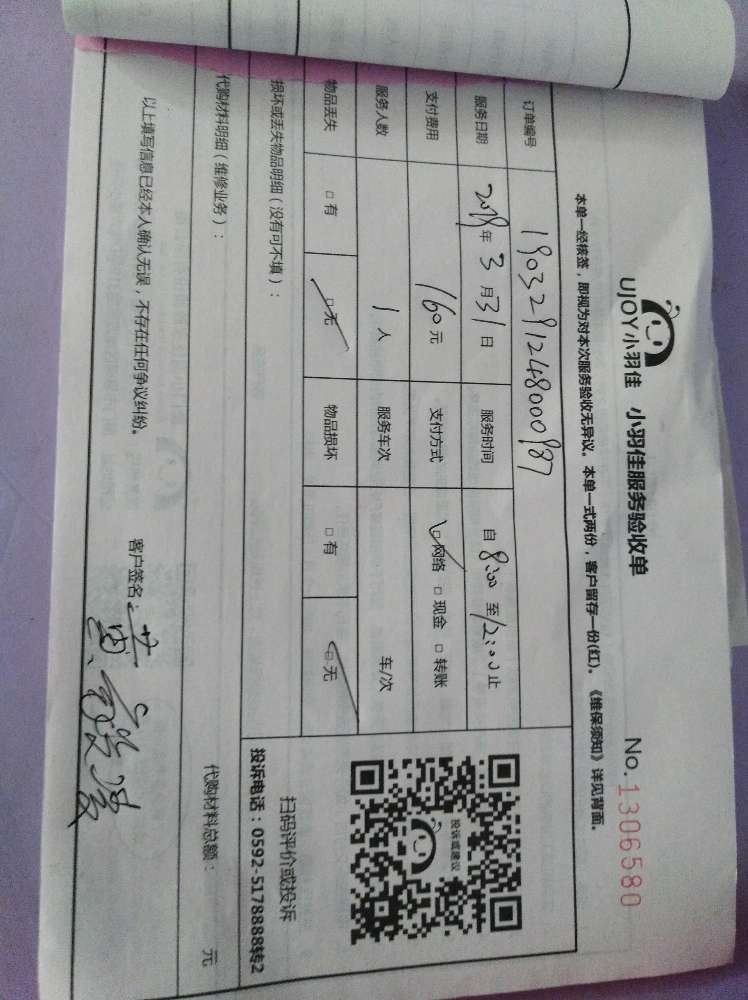 UJOY小羽佳 小羽佳服务验收单 No.1306580
本单一经核签，即视为对本次服务验收无异议。本单一式两份，客户留存一份(红)。《维保须知》详见背面。
订单编号 190329124800987
服务日期 2019年3月31日 服务时间 自8:00至12:00止
支付费用 160元 支付方式 □网络 □现金 □转账
服务人数 1人 服务车次 车/次
物品丢失 □有 □无 物品损坏 □有 □无
投诉或建议
扫码评价或投诉
投诉电话：0592-5178888转2
损坏或丢失物品明细（没有可不填）：
代购材料明细（维修业务）： 代购材料总额： 元
以上填写信息已经本人确认无误，不存在任何争议纠纷。 客户签名：